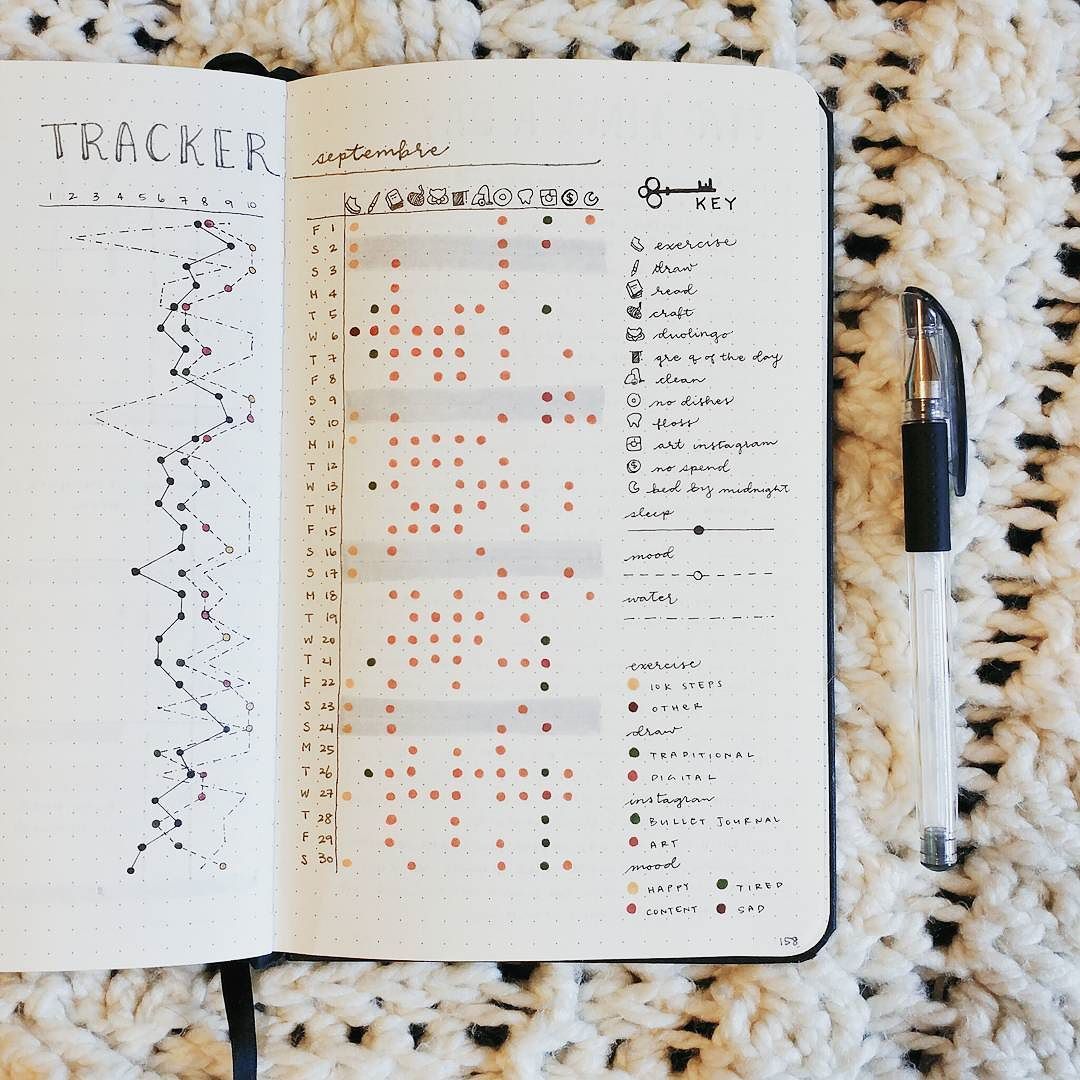 TRACKER
1 2 3 4 5 6 7 8 9 10
septembre
F 1
S 2
S 3
M 4
T 5
W 6
T 7
F 8
S 9
S 10
M 11
T 12
W 13
T 14
F 15
S 16
S 17
M 18
T 19
W 20
T 21
F 22
S 23
S 24
M 25
T 26
W 27
T 28
F 29
S 30
KEY
exercise
draw
read
craft
duolingo
gre q of the day
clean
no dishes
floss
art instagram
no spend
bed by midnight
sleep
mood
water
exercise
10K STEPS
OTHER
draw
TRADITIONAL
DIGITAL
instagram
BULLET JOURNAL
ART
mood
HAPPY TIRED
CONTENT SAD
158